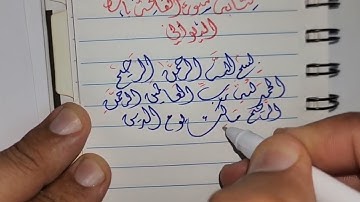 كتابة سورة الفاتحة بالخط
الديواني
بسم الله الرحمن الرحيم
الحمد لله رب العالمين الرحمن
الرحيم مالك يوم الدين